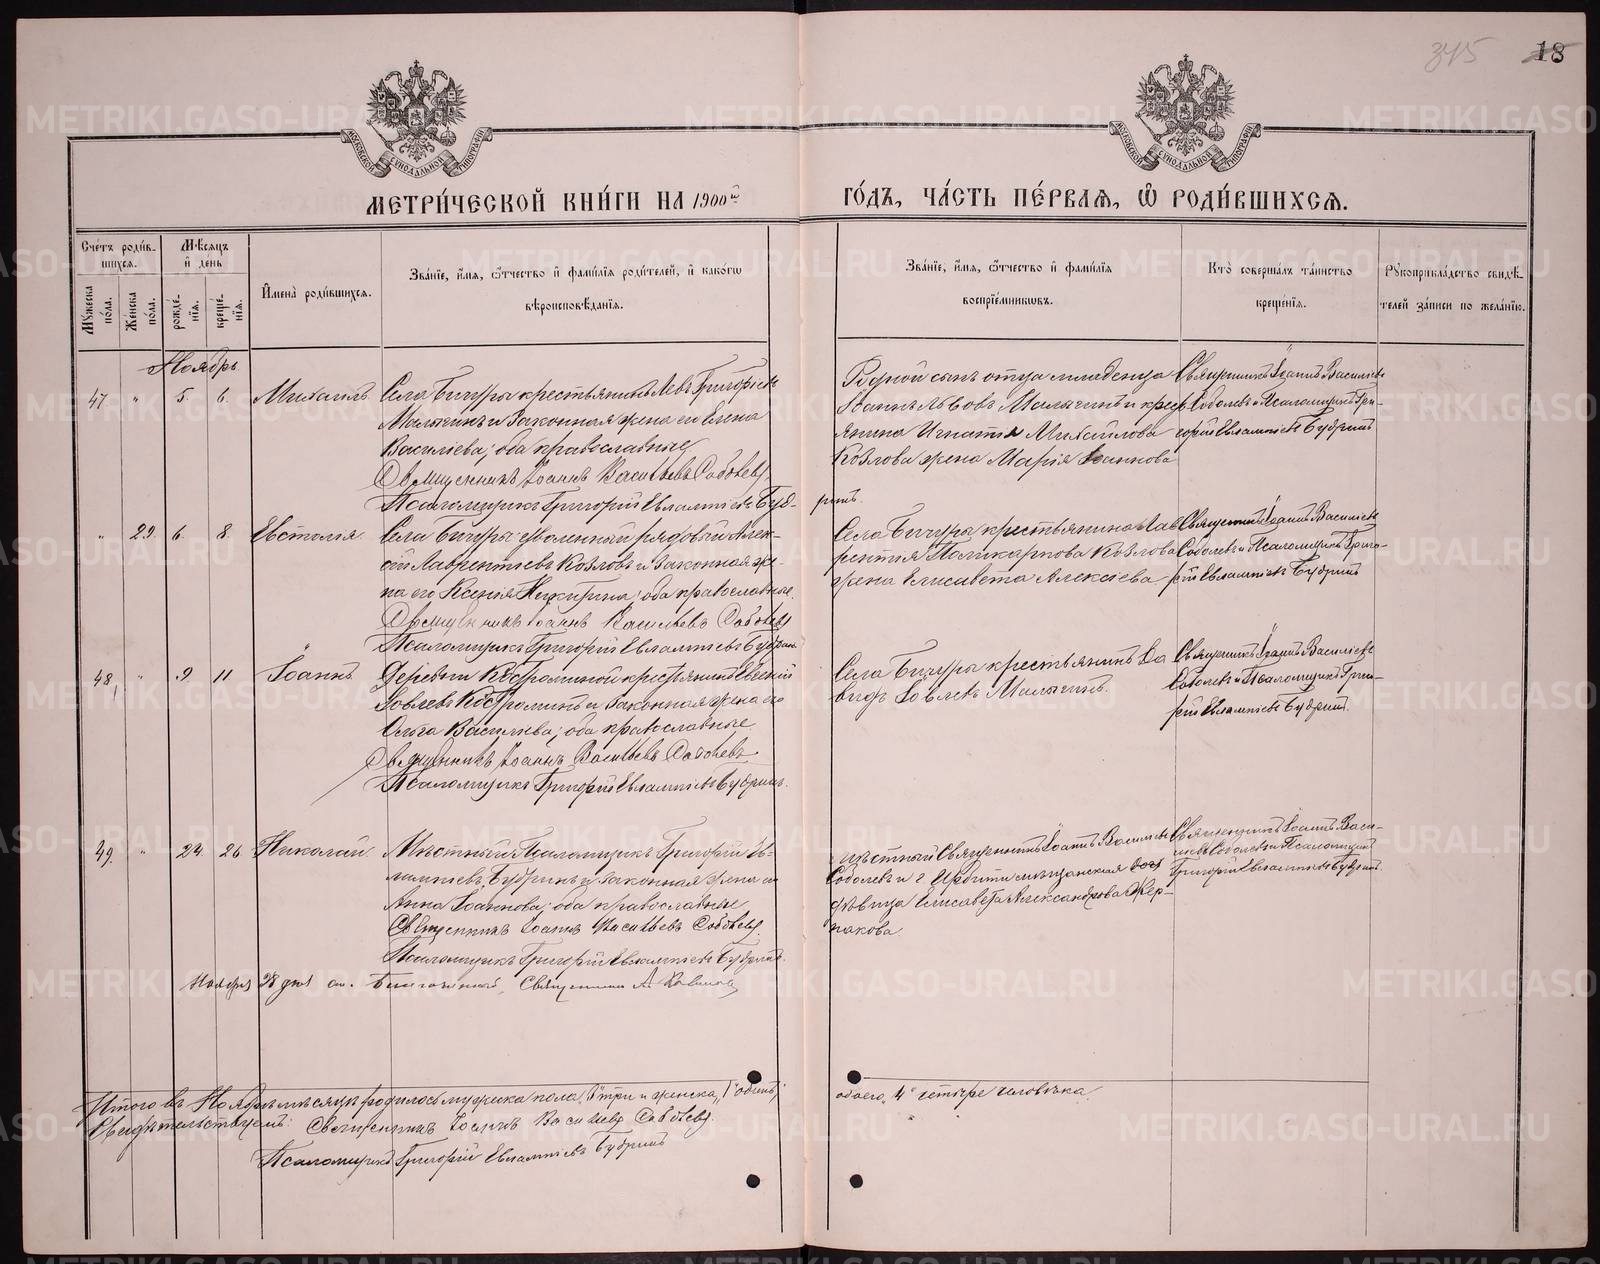 345
18
МОСКОВСКОЙ СУНОДАЛЬНОЙ ТИПОГРАФІИ
МОСКОВСКОЙ СУНОДАЛЬНОЙ ТИПОГРАФІИ
МЕТРИ́ЧЕСКОЙ КНИ́ГИ НА 1900й
ГО́ДЪ, ЧА́СТЬ ПЕ́РВАѦ, Ѽ РОДИ́ВШИХСѦ.
Сче́тъ роди́в-
шихсѧ.
Мѣ́сѧцъ
и҆ де́нь
Мꙋ́жеска по́ла.
Же́нска по́ла.
рожде́-
нїѧ.
креще́-
нїѧ.
И҆мена̀ роди́вшихсѧ.
Зва́нїе, и҆́мѧ, ѻ҆́тчество и҆ фами́лїѧ роди́телей, и҆ како́гѡ
вѣроисповѣ́данїѧ.
Зва́нїе, и҆́мѧ, ѻ҆́тчество и҆ фами́лїѧ
воспрїе́мникѡвъ.
Кто̀ соверша́лъ та́инство
креще́нїѧ.
Рꙋкоприкла́дство свидѣ́-
телей за́писи по жела́нїю.
Ноябрь
47 " 5. 6. Михаилъ
Села Бичуры крестьянинъ Левъ Григорьевъ
Малыгинъ и законная жена его Елена
Васильева; оба православные
Священникъ Іоаннъ Васильевъ Соболевъ
Псаломщикъ Григорій Евлампіевъ Буд-
ринъ.
Родной сынъ отца младенца
Іоаннъ Львовъ Малыгинъ и крест
янина Игнатія Михайлова
Козлова жена Марія Іоаннова
Священникъ Іоаннъ Васильевъ
Соболевъ и Псаломщикъ Гри-
горій Евлампіевъ Будринъ
" 29. 6. 8. Евстолія.
Села Бичуры уволенный рядовый Алек-
сій Лаврентьевъ Козловъ и законная же-
на его Ксенія Никитина; оба православные.
Священникъ Іоаннъ Васильевъ Соболевъ
Псаломщикъ Григорій Евлампіевъ Будринъ
Села Бичуры крестьянина Лав
рентія Поликарпова Козлова
жена Елисавета Алексіева
Священникъ Іоаннъ Васильевъ
Соболевъ и Псаломщикъ Григо-
рій Евлампіевъ Будринъ
48, " 9 11 Іоаннъ
Деревни Костроминой крестьянинъ Евгеній
Іовлевъ Костроминъ и законная жена его
Ольга Васильева; оба православные
Священникъ Іоаннъ Васильевъ Соболевъ
Псаломщикъ Григорій Евлампіевъ Будринъ.
Села Бичуры крестьянинъ Да
видъ Іовлевъ Малыгинъ.
Священникъ Іоаннъ Васильевъ
Соболевъ и Псаломщикъ Григо-
рій Евлампіевъ Будринъ.
49. " 24. 26 Николай.
Мѣстный Псаломщикъ Григорій Ев-
лампіевъ Будринъ и законная жена его
Анна Іоаннова; оба православные
Священникъ Іоаннъ Васильевъ Соболевъ.
Псаломщикъ Григорій Евлампіевъ Будринъ.
мѣстный Священникъ Іоаннъ Васильевъ
Соболевъ и г. Ирбити мѣщанская дочь
дѣвица Елисавета Александрова Жер-
накова.
Священникъ Іоаннъ Васи-
льевъ Соболевъ и Псаломщикъ
Григорій Евлампіевъ Будринъ.
Ноября 28 дня Священникъ А.
Итого въ Ноябрѣ мѣсяцѣ родилось мужска пола 3 "три" и женска, 1 "одинъ"
обоего, 4 "четыре человѣка.
Свидѣтельствуемъ: Священникъ Іоаннъ Васильевъ Соболевъ.
Псаломщикъ Григорій Евлампіевъ Будринъ
METRIKI.GASO-URAL.RU